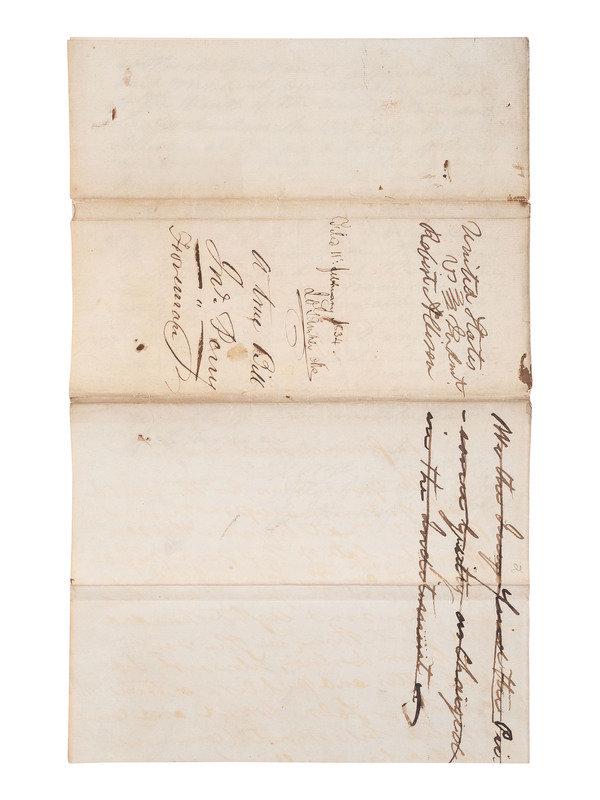 United States
vs Indmt
Robert Allison
Filed 11th February 1834.
A true Bill
Jno. Perry
Foreman
We the Jury find the Pri-
soner guilty as Charged
in the Indictment